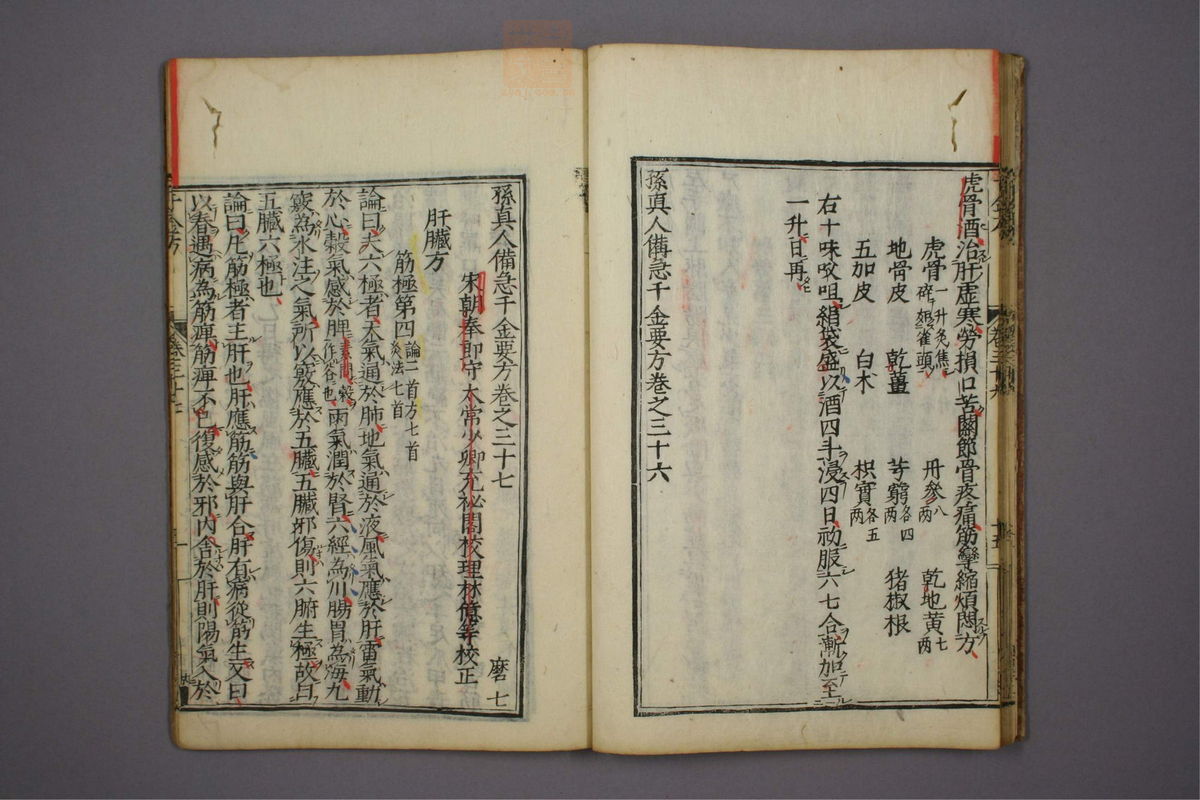 虎骨酒治肝虛寒勞損口苦關節骨疼痛筋攣縮煩悶方
虎骨一升炙焦碎如雀頭 丹參八兩 乾地黃七兩
地骨皮 乾薑 芎藭各四兩 猪椒根
五加皮 白朮 枳實各五兩
右十味㕮咀絹袋盛以酒四斗浸四日初服六七合漸加至
一升日再
孫真人備急千金要方卷之三十六
孫真人備急千金要方卷之三十七 磨七
宋朝奉郎守太常少卿充祕閣校理林億等校正
肝臟方
筋極第四論二首方七首灸法七首
論曰夫六極者天氣通於肺地氣通於液風氣應於肝雷氣動
於心穀氣感於脾素問穀作谷也雨氣潤於腎六經為川腸胃為海九
竅為水注之氣所以竅應於五臟五臟邪傷則六腑生極故曰
五臟六極也
論曰凡筋極者主肝也肝應筋筋與肝合肝有病從筋生又曰
以春遇病為筋痺筋痺不已復感於邪內舍於肝則陽氣入於